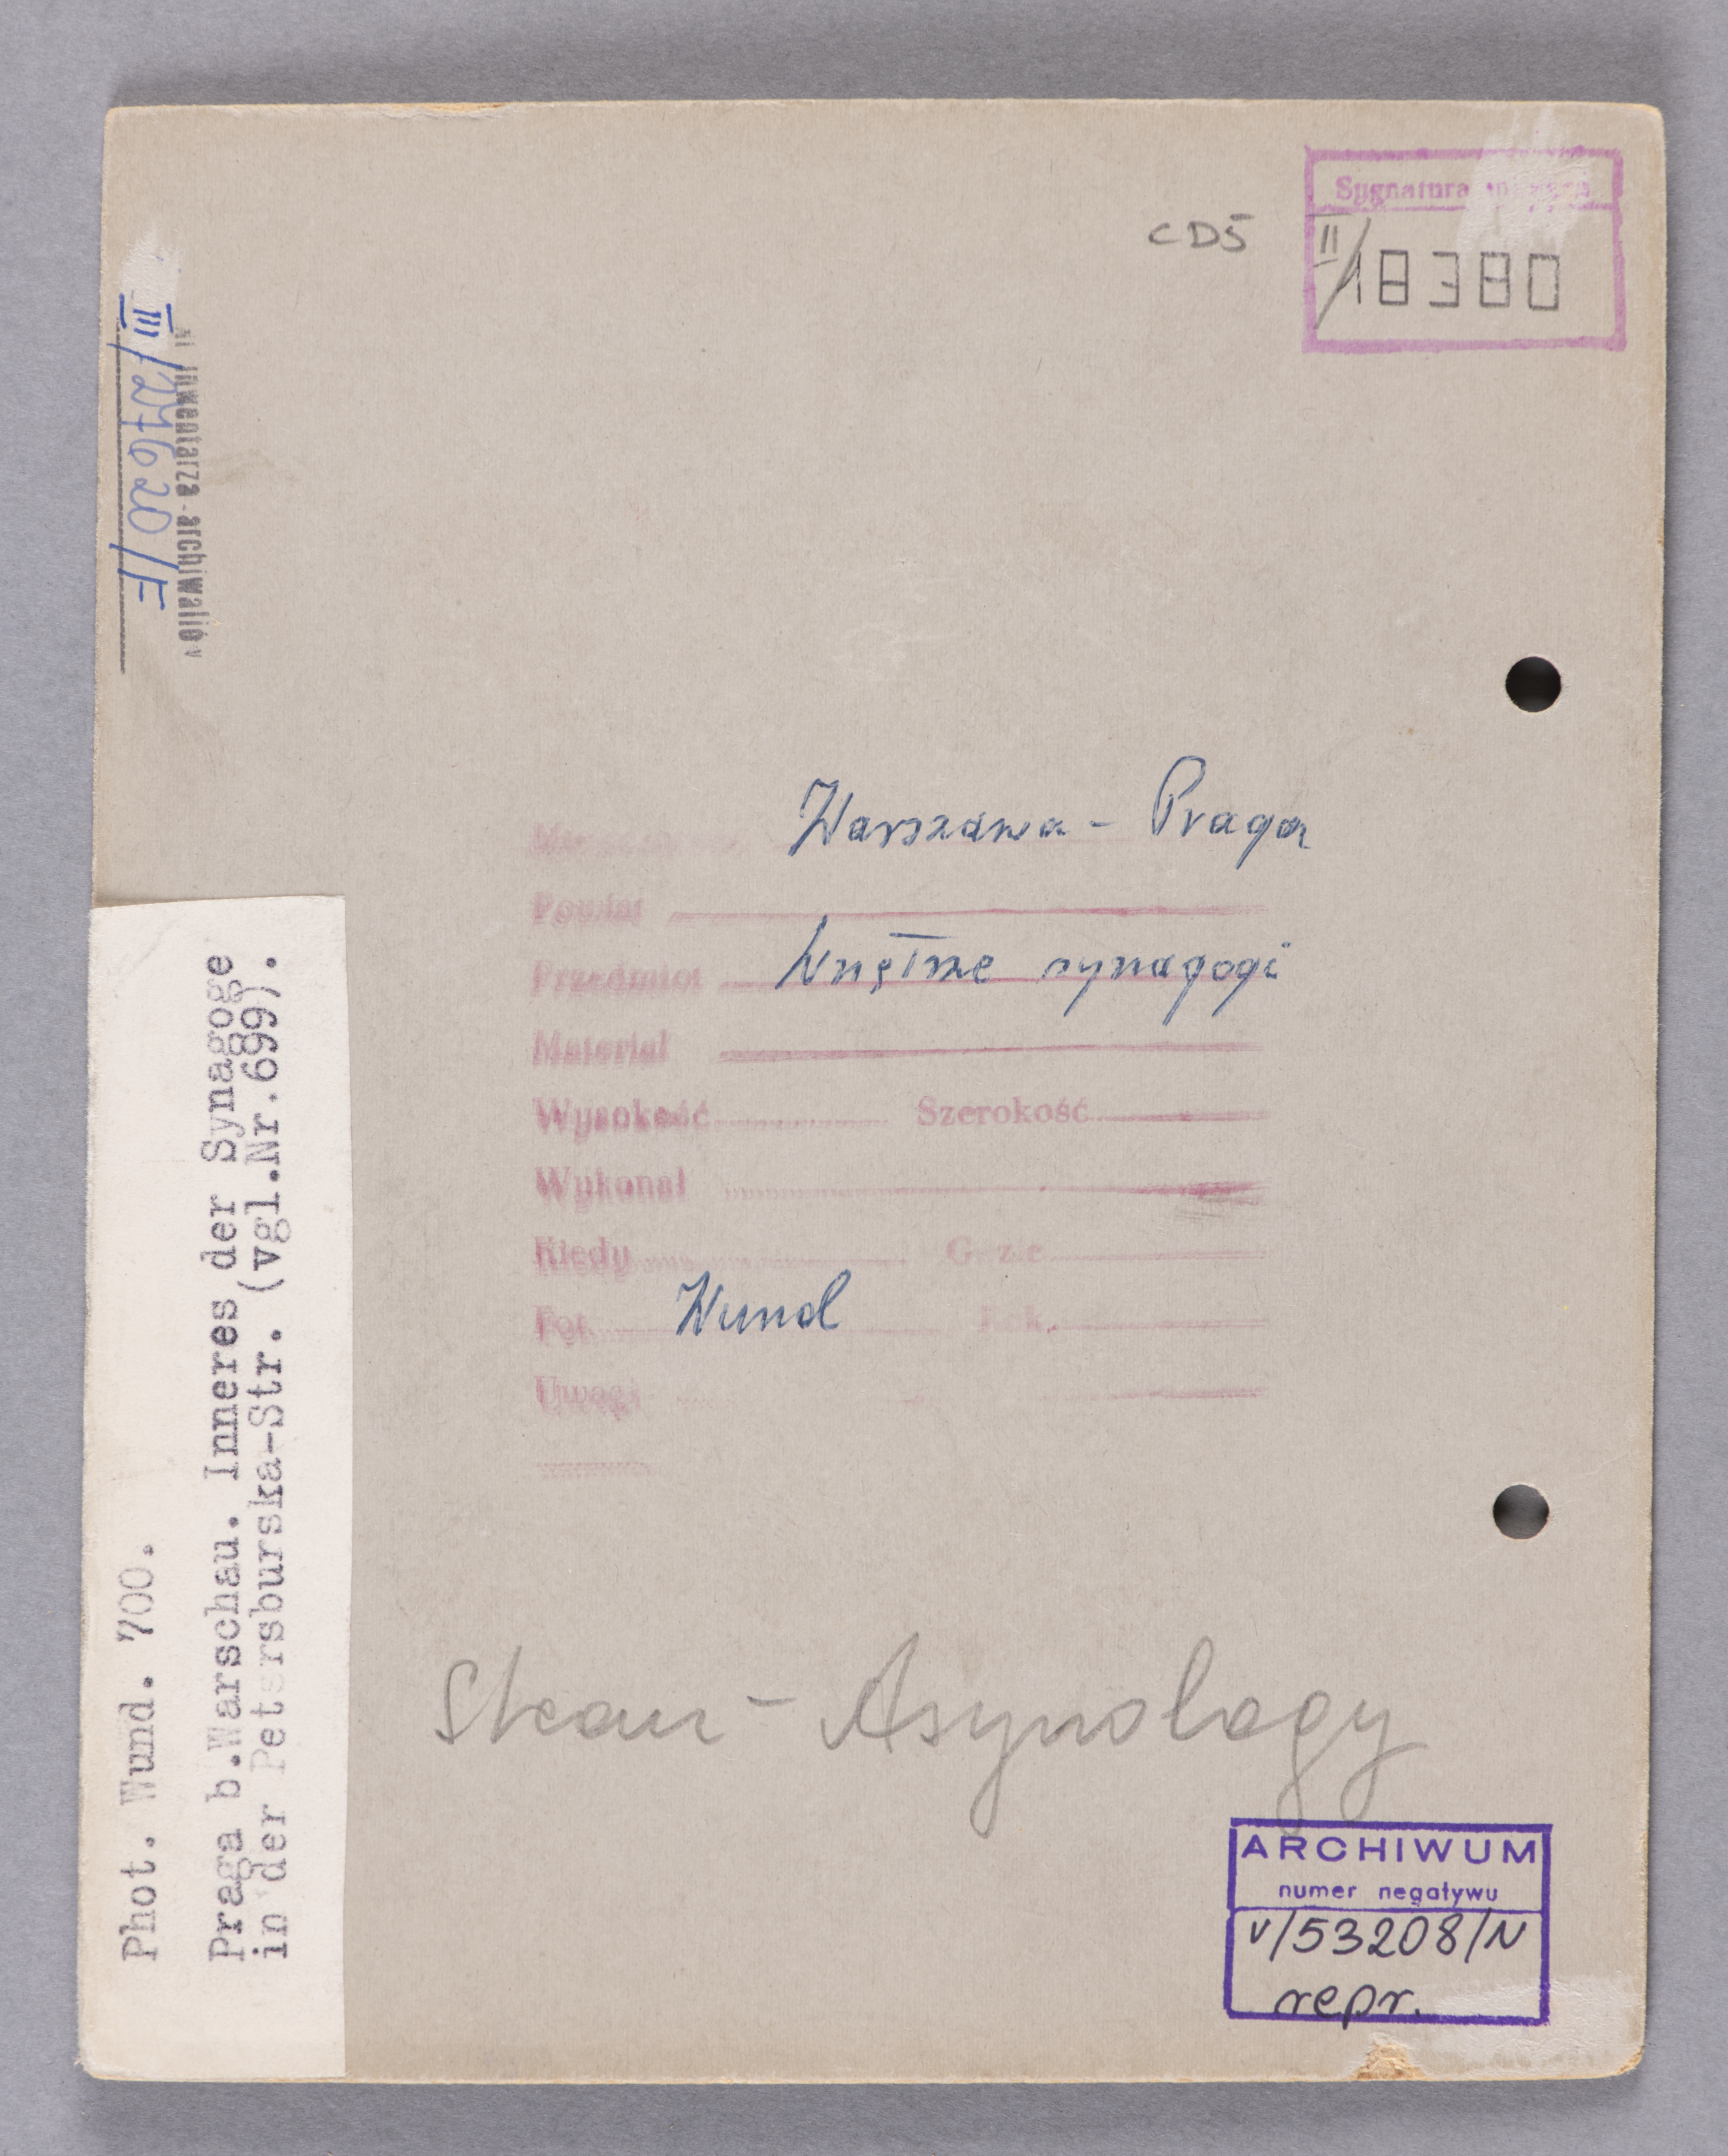 CD5
Sygnatura
II/18380
inwentarza archiwalió
III/27620/F
Warszawa - Praga
Powiat
Przedmiot Wnętrze synagogi
Materiał
Wysokość Szerokość
Wykonał
Kiedy
Fot. Wund
Uwagi
Phot. Wund. 700.
Praga b.Warschau. Inneres der Synagoge
in der Petersburska-Str. (vgl.Nr.699).
ARCHIWUM
numer negatywu
V/53208/N
repr.